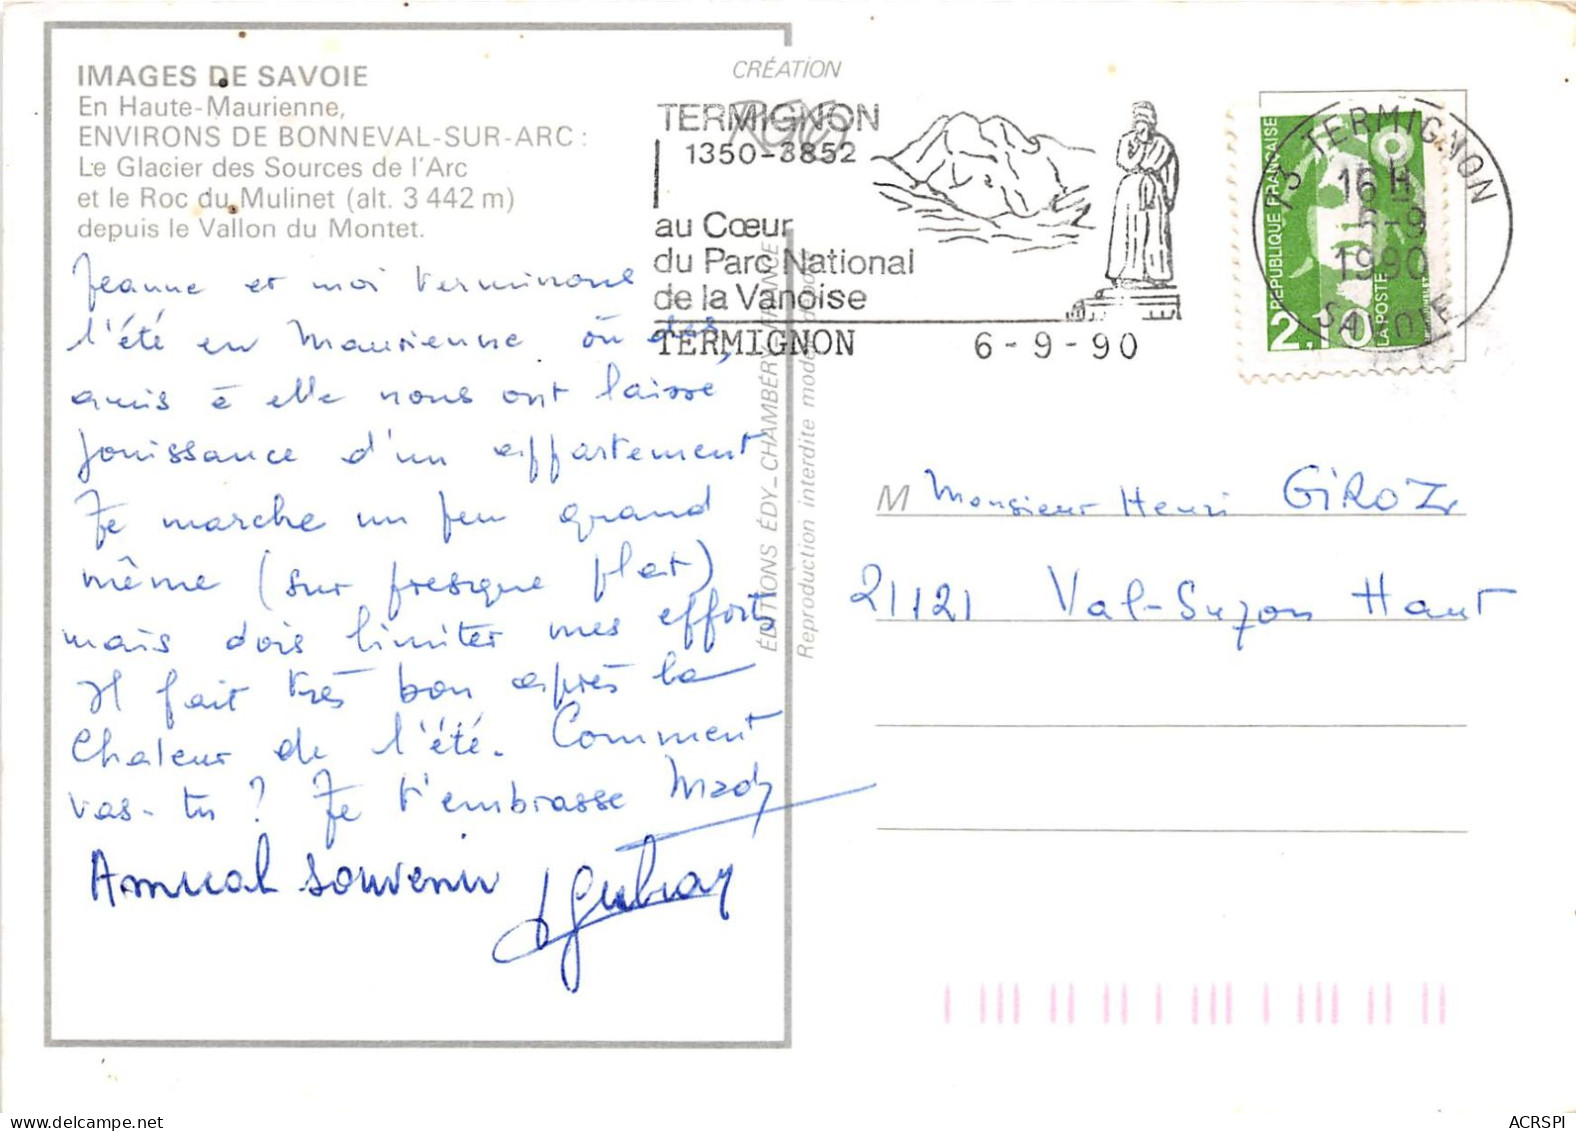 IMAGES DE SAVOIE
En Haute-Maurienne,
ENVIRONS DE BONNEVAL-SUR-ARC :
Le Glacier des Sources de l'Arc
et le Roc du Mulinet (alt. 3 442 m)
depuis le Vallon du Montet.
Jeanne et moi terminons
l'été en Maurienne où des
amis à elle nous ont laissé
jouissance d'un appartement
Je marche un peu quand
même (sur presque plat)
mais dois limiter mes efforts
Il fait très bon après la
Chaleur de l'été. Comment
vas-tu ? Je t'embrasse Mady
Amical souvenir
CRÉATION
ÉDITIONS ÉDY_CHAMBÉRY FRANCE
Reproduction interdite
TERMIGNON
1350-3852
au Cœur
du Parc National
de la Vanoise
TERMIGNON 6-9-90
73 TERMIGNON
16 H
6-9
1990
SAVOIE
RÉPUBLIQUE FRANÇAISE
2,10
LA POSTE
M Monsieur Henri GIROZ
21121 Val-Suzon Haut
ACRSPI